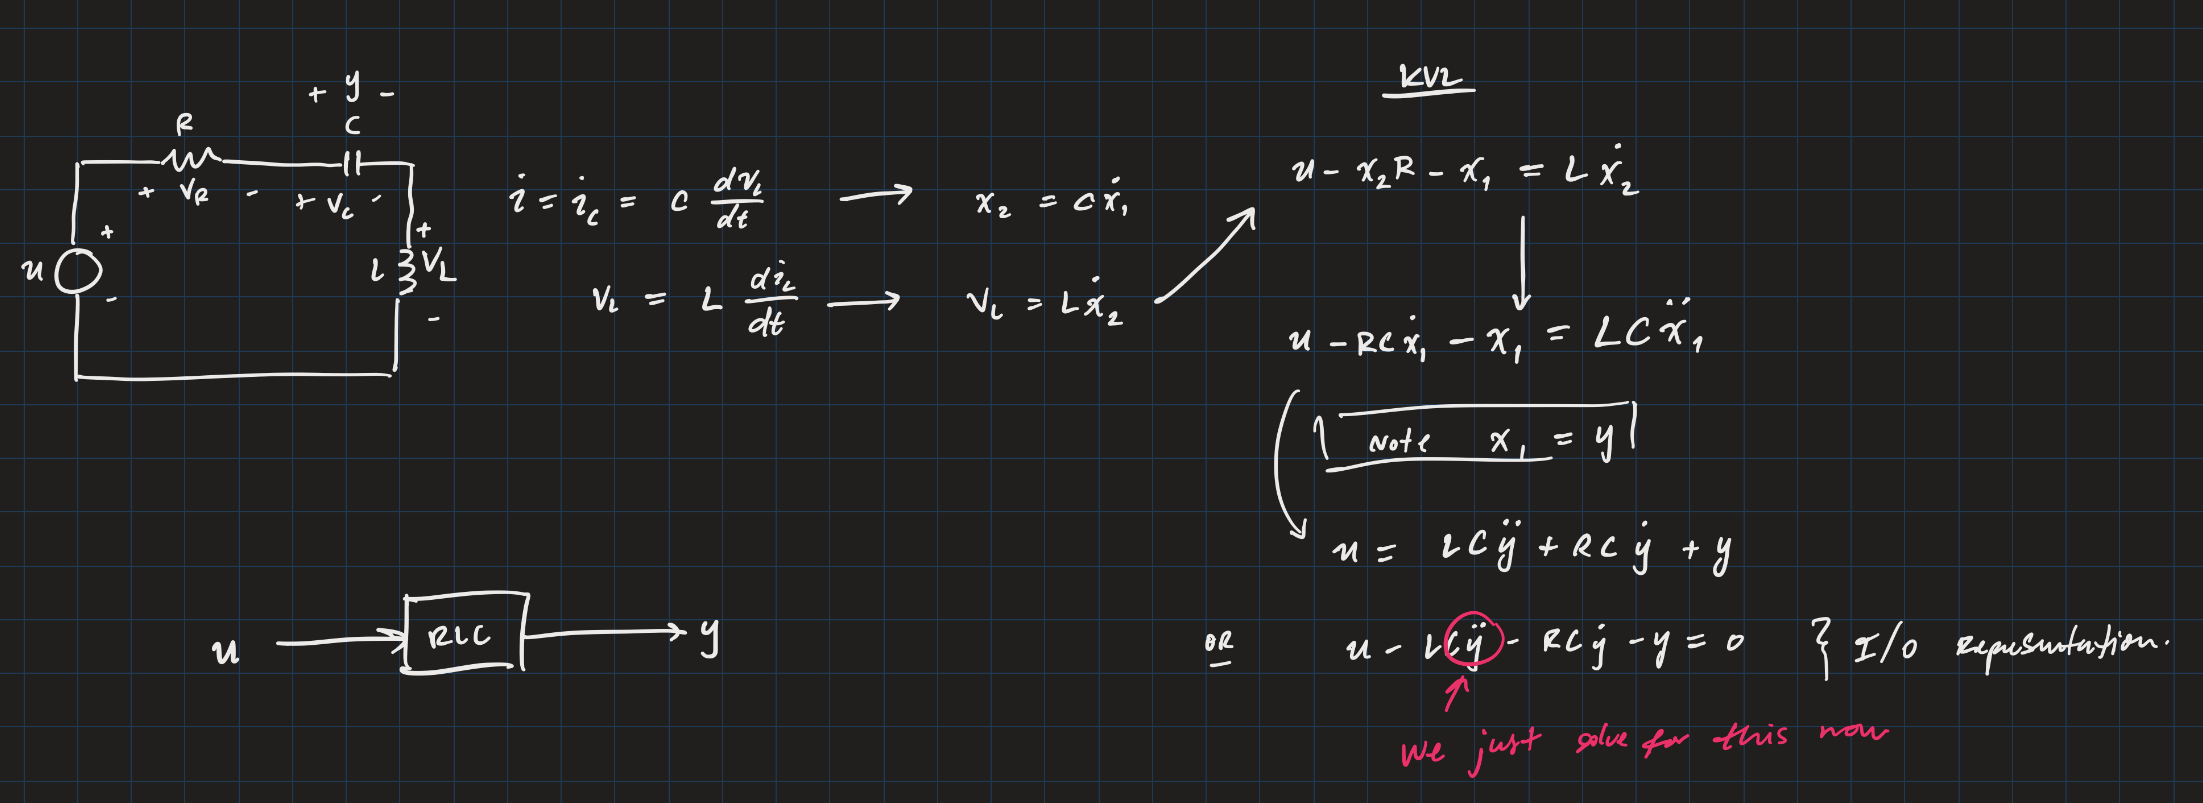 + y -
C
R
+ V_R -
+ V_C -
u
+
-
L
+
V_L
-
i = i_c = C dv_c/dt → x_2 = Cẋ_1
V_L = L di_L/dt → V_L = Lẋ_2
u → RLC → y
KVL
u - x_2R - x_1 = Lẋ_2
u - RCẋ_1 - x_1 = LCẍ_1
Note x_1 = y
u = LCÿ + RCẏ + y
OR u - LCÿ - RCẏ - y = 0 } I/O Representation.
We just solve for this now